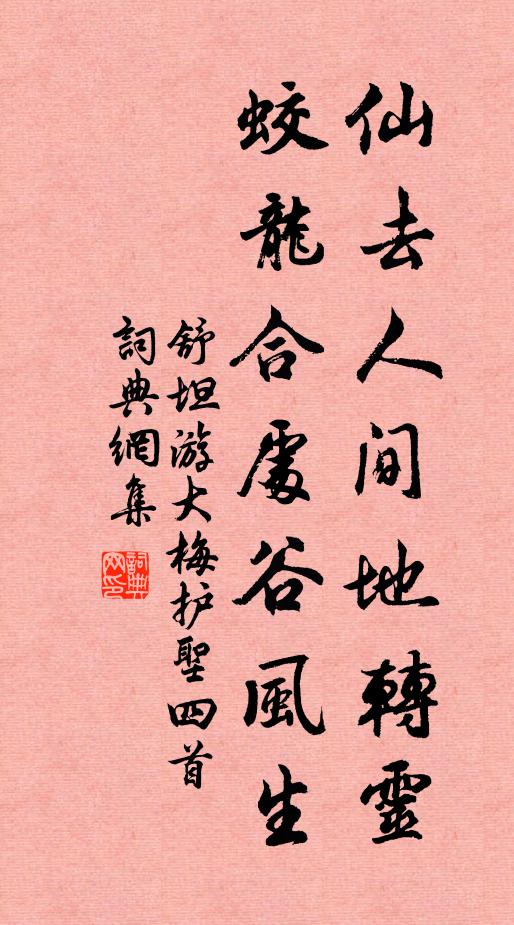 仙去人间地轉靈
蛟龍合處谷風生
舒坦游大梅护聖四首
詞典網集
詞典网印